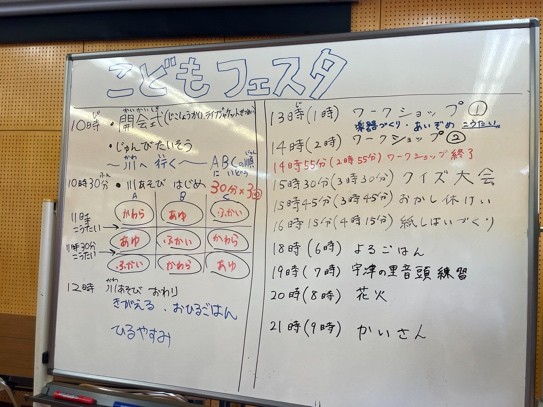 こどもフェスタ
10時 ・開会式(じこしょうかい)ライフジャケット
・じゅんびたいそう
〜川へ行く〜 ABCの順に
10時30分 ・川あそび はじめ 30分×3回
A B C
かわら あゆ ふかい
11時 こうたい→
あゆ ふかい かわら
11時30分 こうたい→
ふかい かわら あゆ
12時 川あそび おわり
きがえる・おひるごはん
ひるやすみ
13時(1時) ワークショップ①
楽器づくり・あいぞめ こうたい
14時(2時) ワークショップ②
14時55分(2時55分) ワークショップ終了
15時30分(3時30分) クイズ大会
15時45分(3時45分) おかし休けい
16時15分(4時15分) 紙しばいづくり
18時(6時) よるごはん
19時(7時) 宇津の里音頭練習
20時(8時) 花火
21時(9時) かいさん